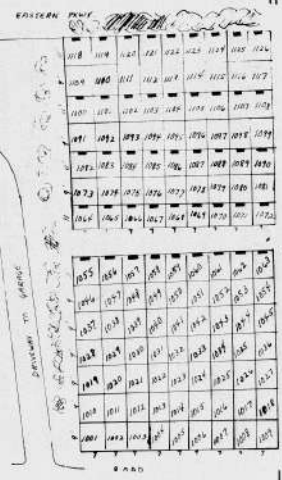 EASTERN PKWY
1118 1119 1120 1121 1122 1123 1124 1125 1126
1109 1110 1111 1112 1113 1114 1115 1116 1117
1100 1101 1102 1103 1104 1105 1106 1107 1108
1091 1092 1093 1094 1095 1096 1097 1098 1099
1082 1083 1084 1085 1086 1087 1088 1089 1090
1073 1074 1075 1076 1077 1078 1079 1080 1081
1064 1065 1066 1067 1068 1069 1070 1071 1072
1055 1056 1057 1058 1059 1060 1061 1062 1063
1046 1047 1048 1049 1050 1051 1052 1053 1054
1037 1038 1039 1040 1041 1042 1043 1044 1045
1028 1029 1030 1031 1032 1033 1034 1035 1036
1019 1020 1021 1022 1023 1024 1025 1026 1027
1010 1011 1012 1013 1014 1015 1016 1017 1018
1001 1002 1003 1004 1005 1006 1007 1008 1009
DRIVEWAY TO GARAGE